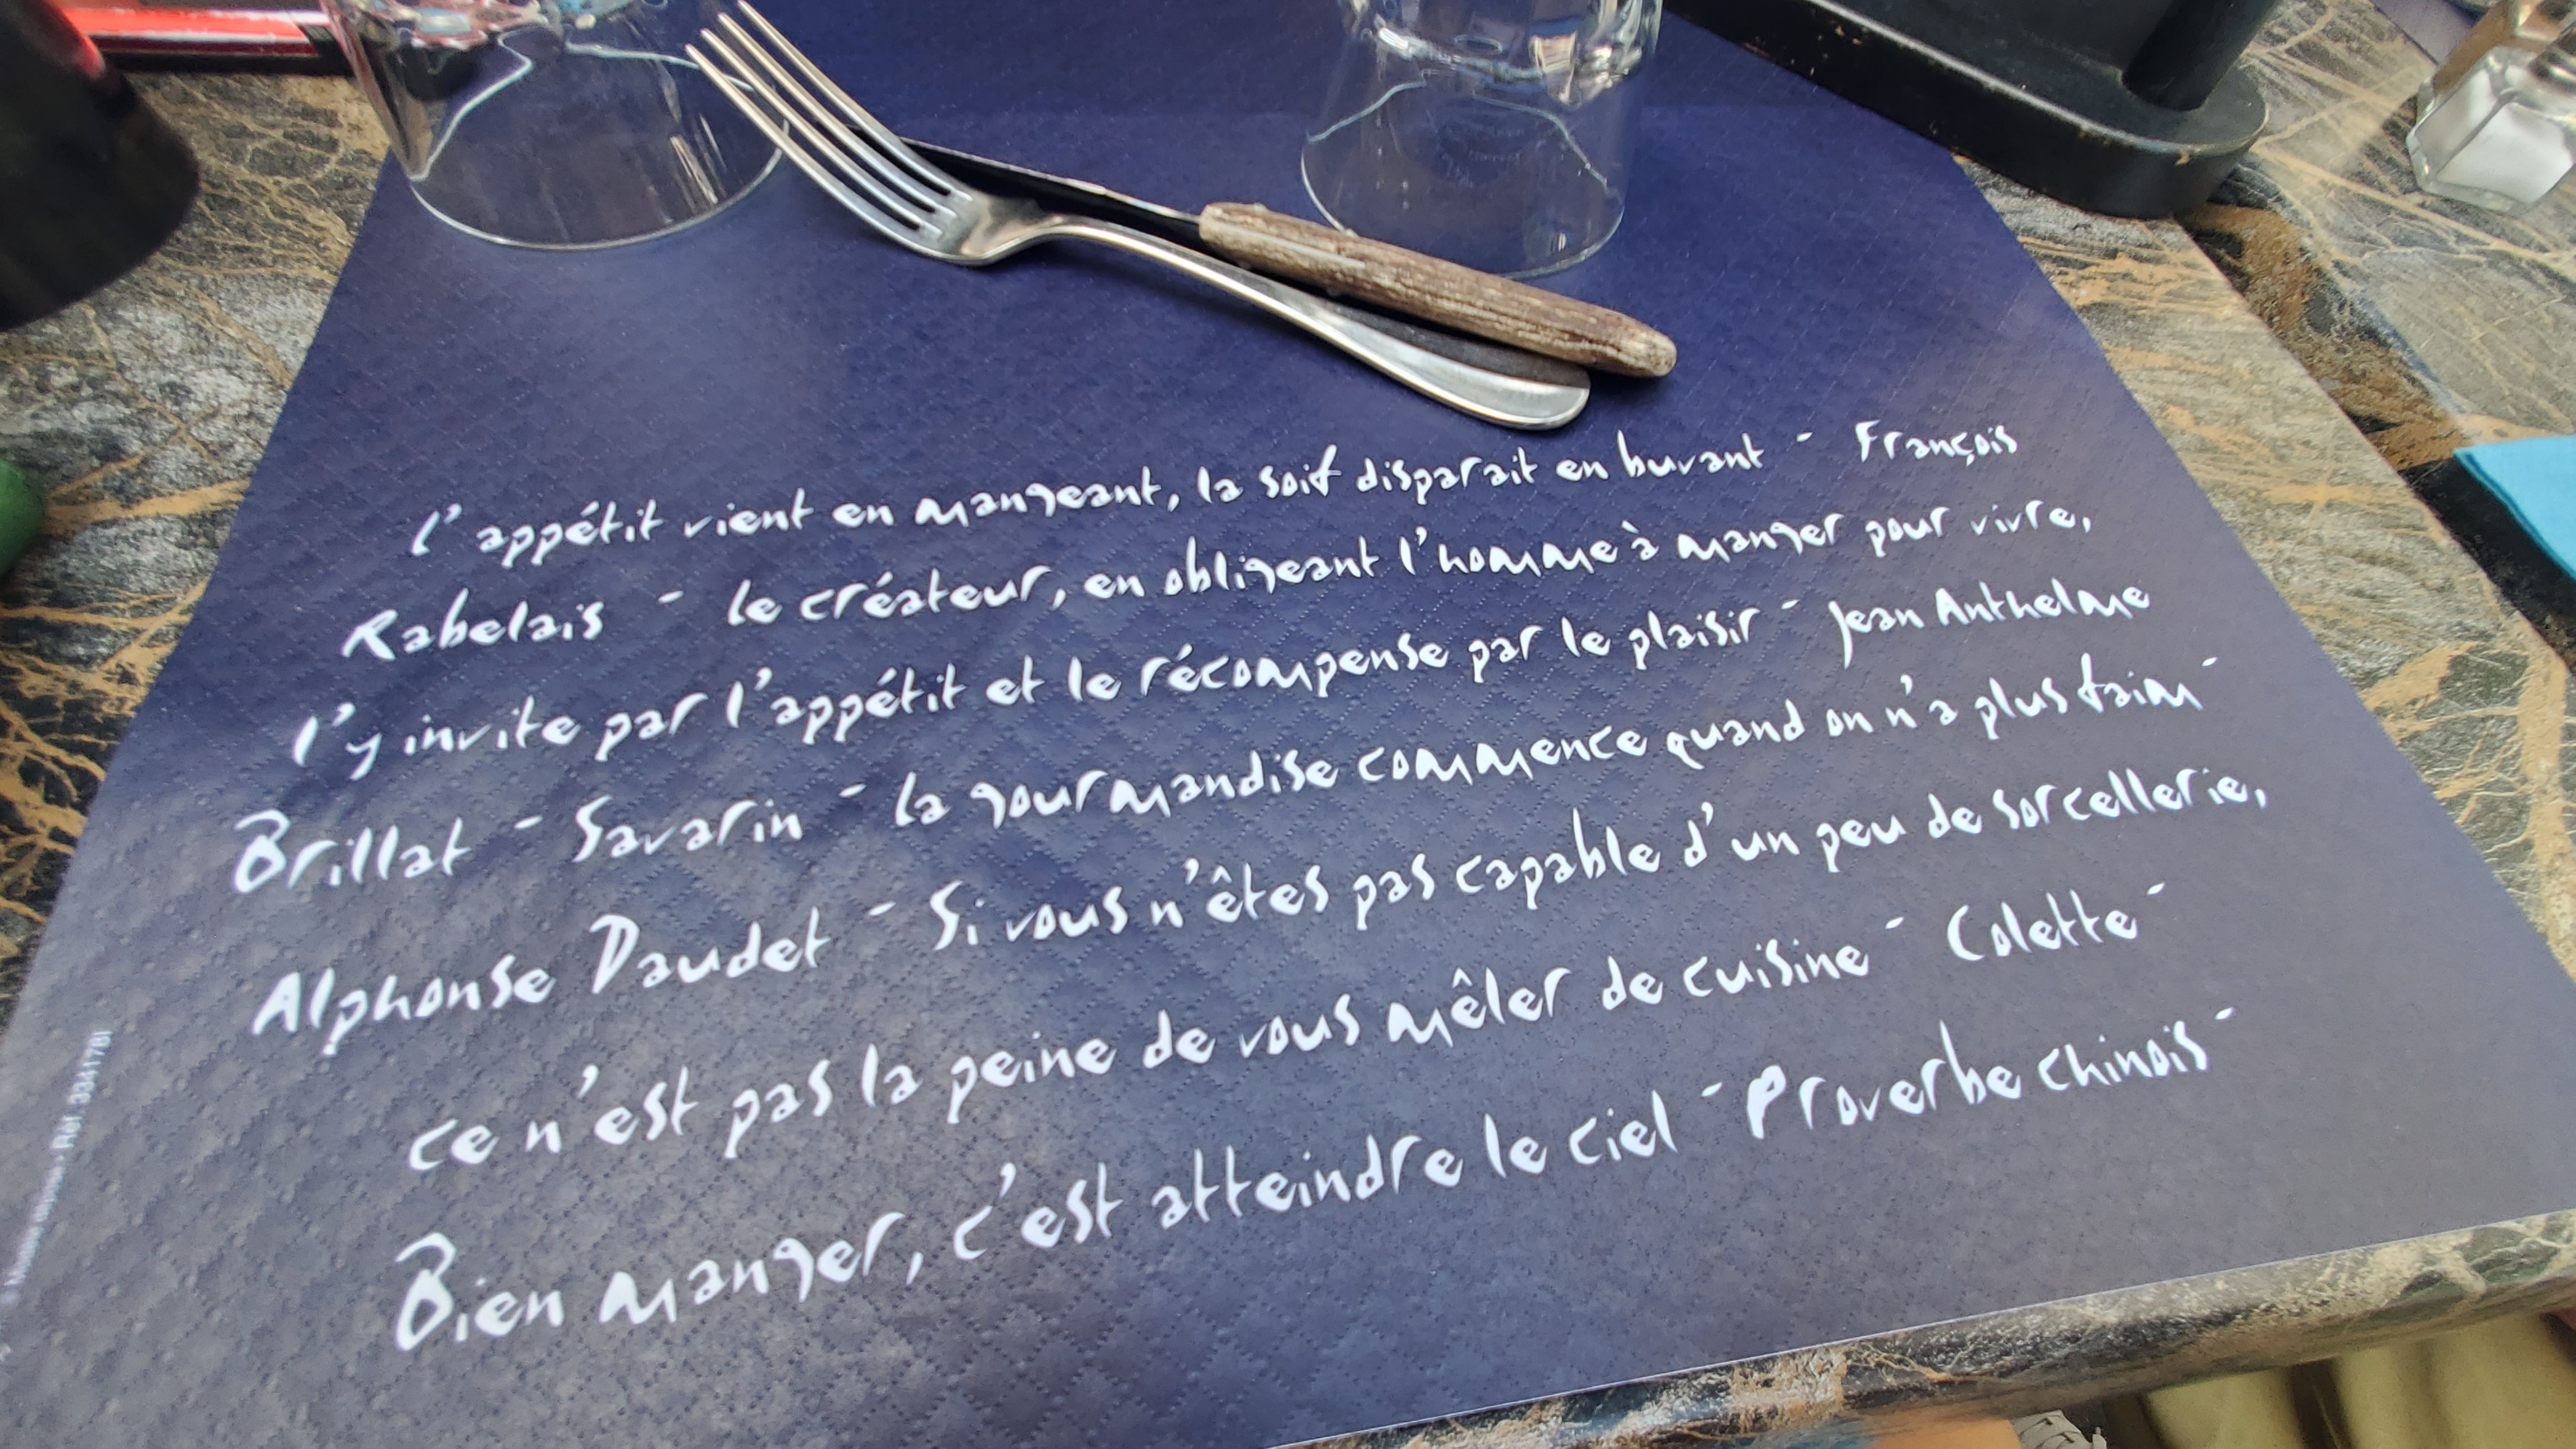 l'appétit vient en mangeant, la soif disparait en buvant - François
Rabelais - le créateur, en obligeant l'homme à manger pour vivre,
l'y invite par l'appétit et le récompense par le plaisir - Jean Anthelme
Brillat - Savarin - la gourmandise commence quand on n'a plus faim -
Alphonse Daudet - Si vous n'êtes pas capable d'un peu de sorcellerie,
ce n'est pas la peine de vous mêler de cuisine - Colette -
Bien manger, c'est atteindre le ciel - Proverbe chinois -
Réf. 334178I